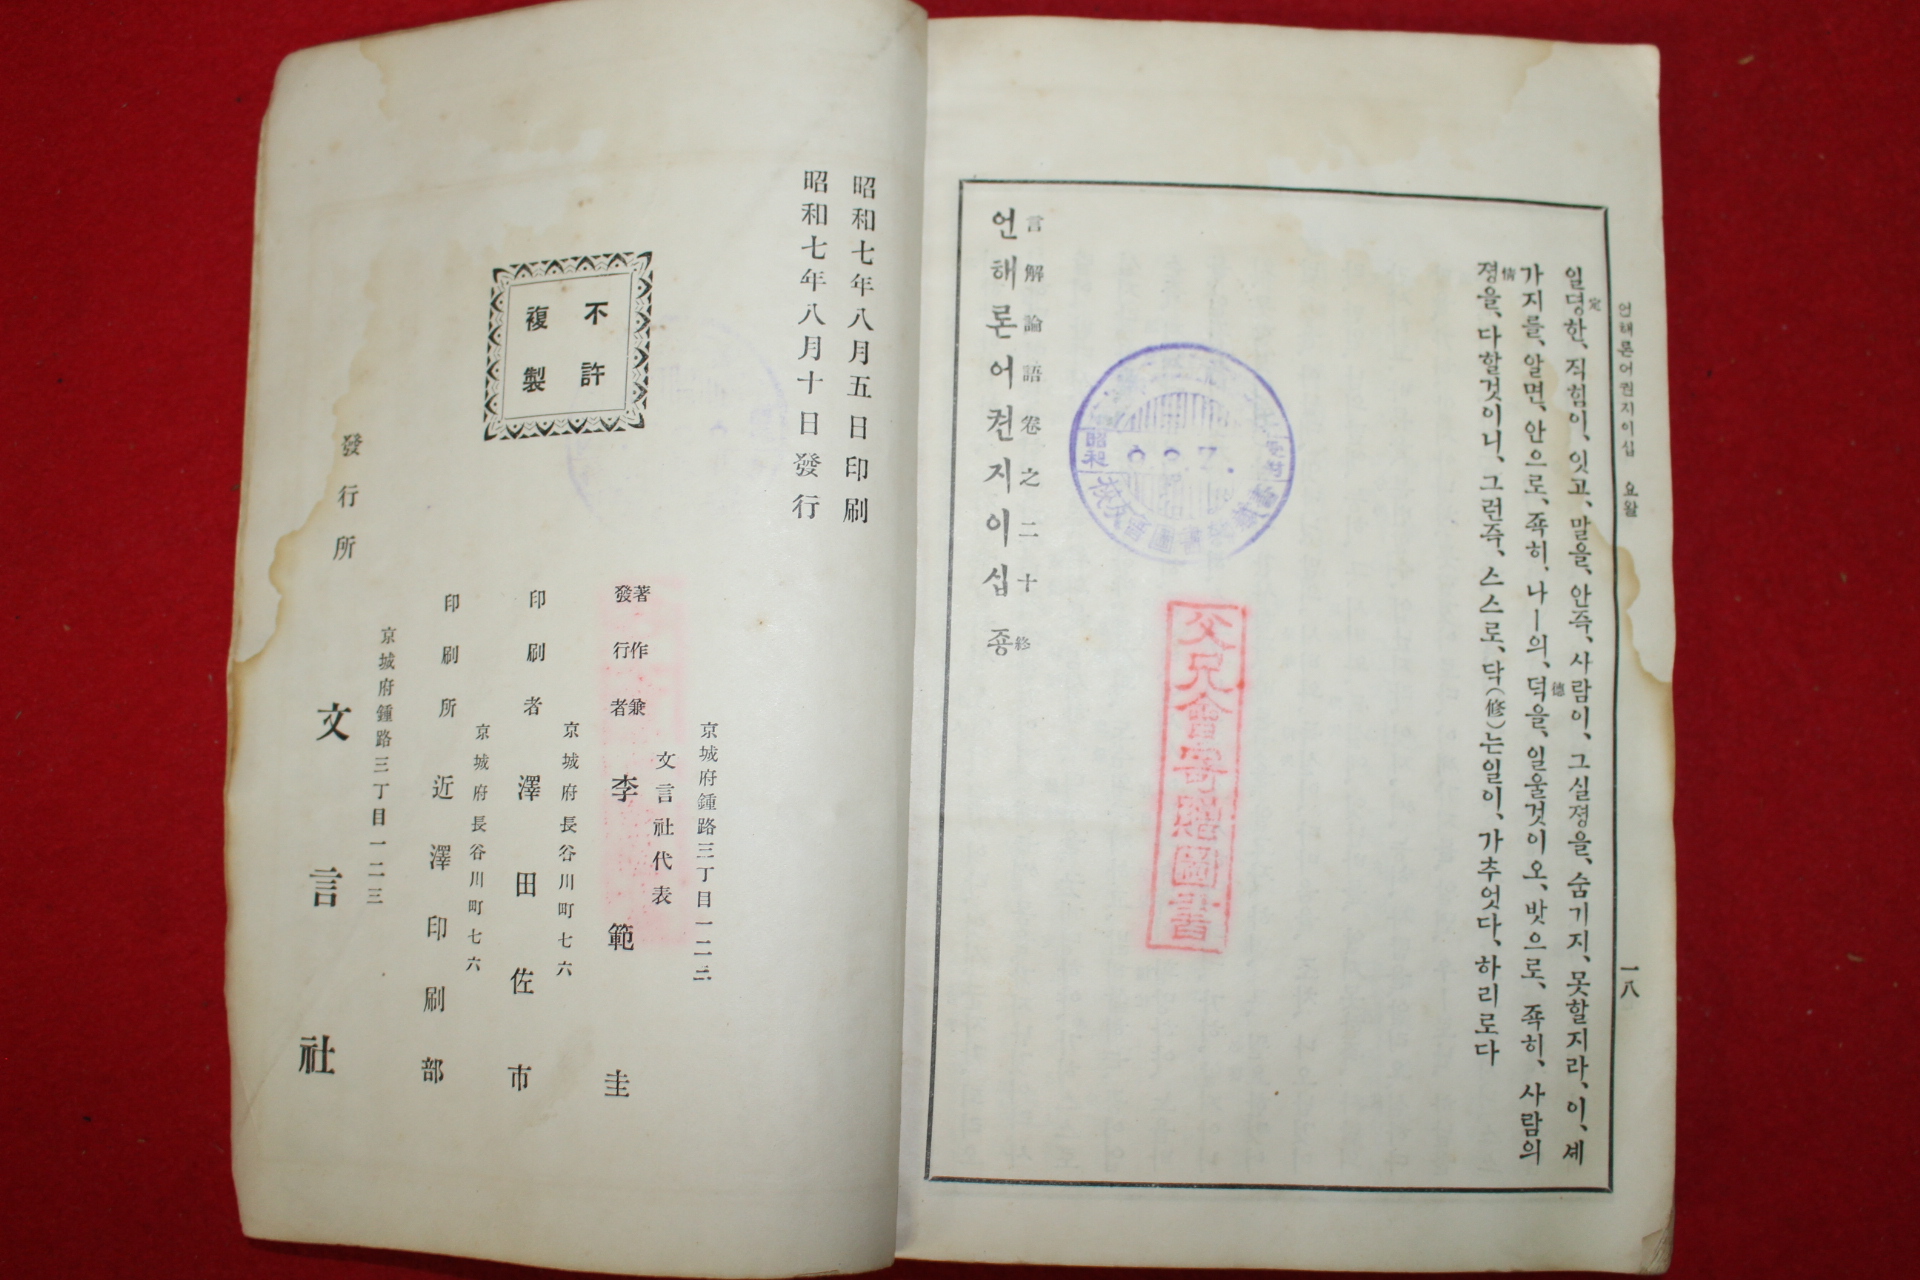 언해론어권지이십 요왈
一八
일뎡한、직힘이、잇고、말을、안즉、사람이、그실졍을、숨기지、못할지라、이、셰
定
가지를、알면、안으로、죡히、나ㅣ의、덕을、일울것이오、밧으로、죡히、사람의
德
졍을、다할것이니、그런즉、스스로、닥(修)는일이、가추엇다、하리로다
情
言解論語卷之二十 終
언해론어권지이십 죵
昭和
父兄會寄贈圖書
昭和七年八月五日印刷
昭和七年八月十日發行
不許
複製
京城府鍾路三丁目一二三
文言社代表
著作兼
發行者 李範圭
京城府長谷川町七六
印刷者 澤田佐市
京城府長谷川町七六
印刷所 近澤印刷部
京城府鍾路三丁目一二三
發行所 文言社